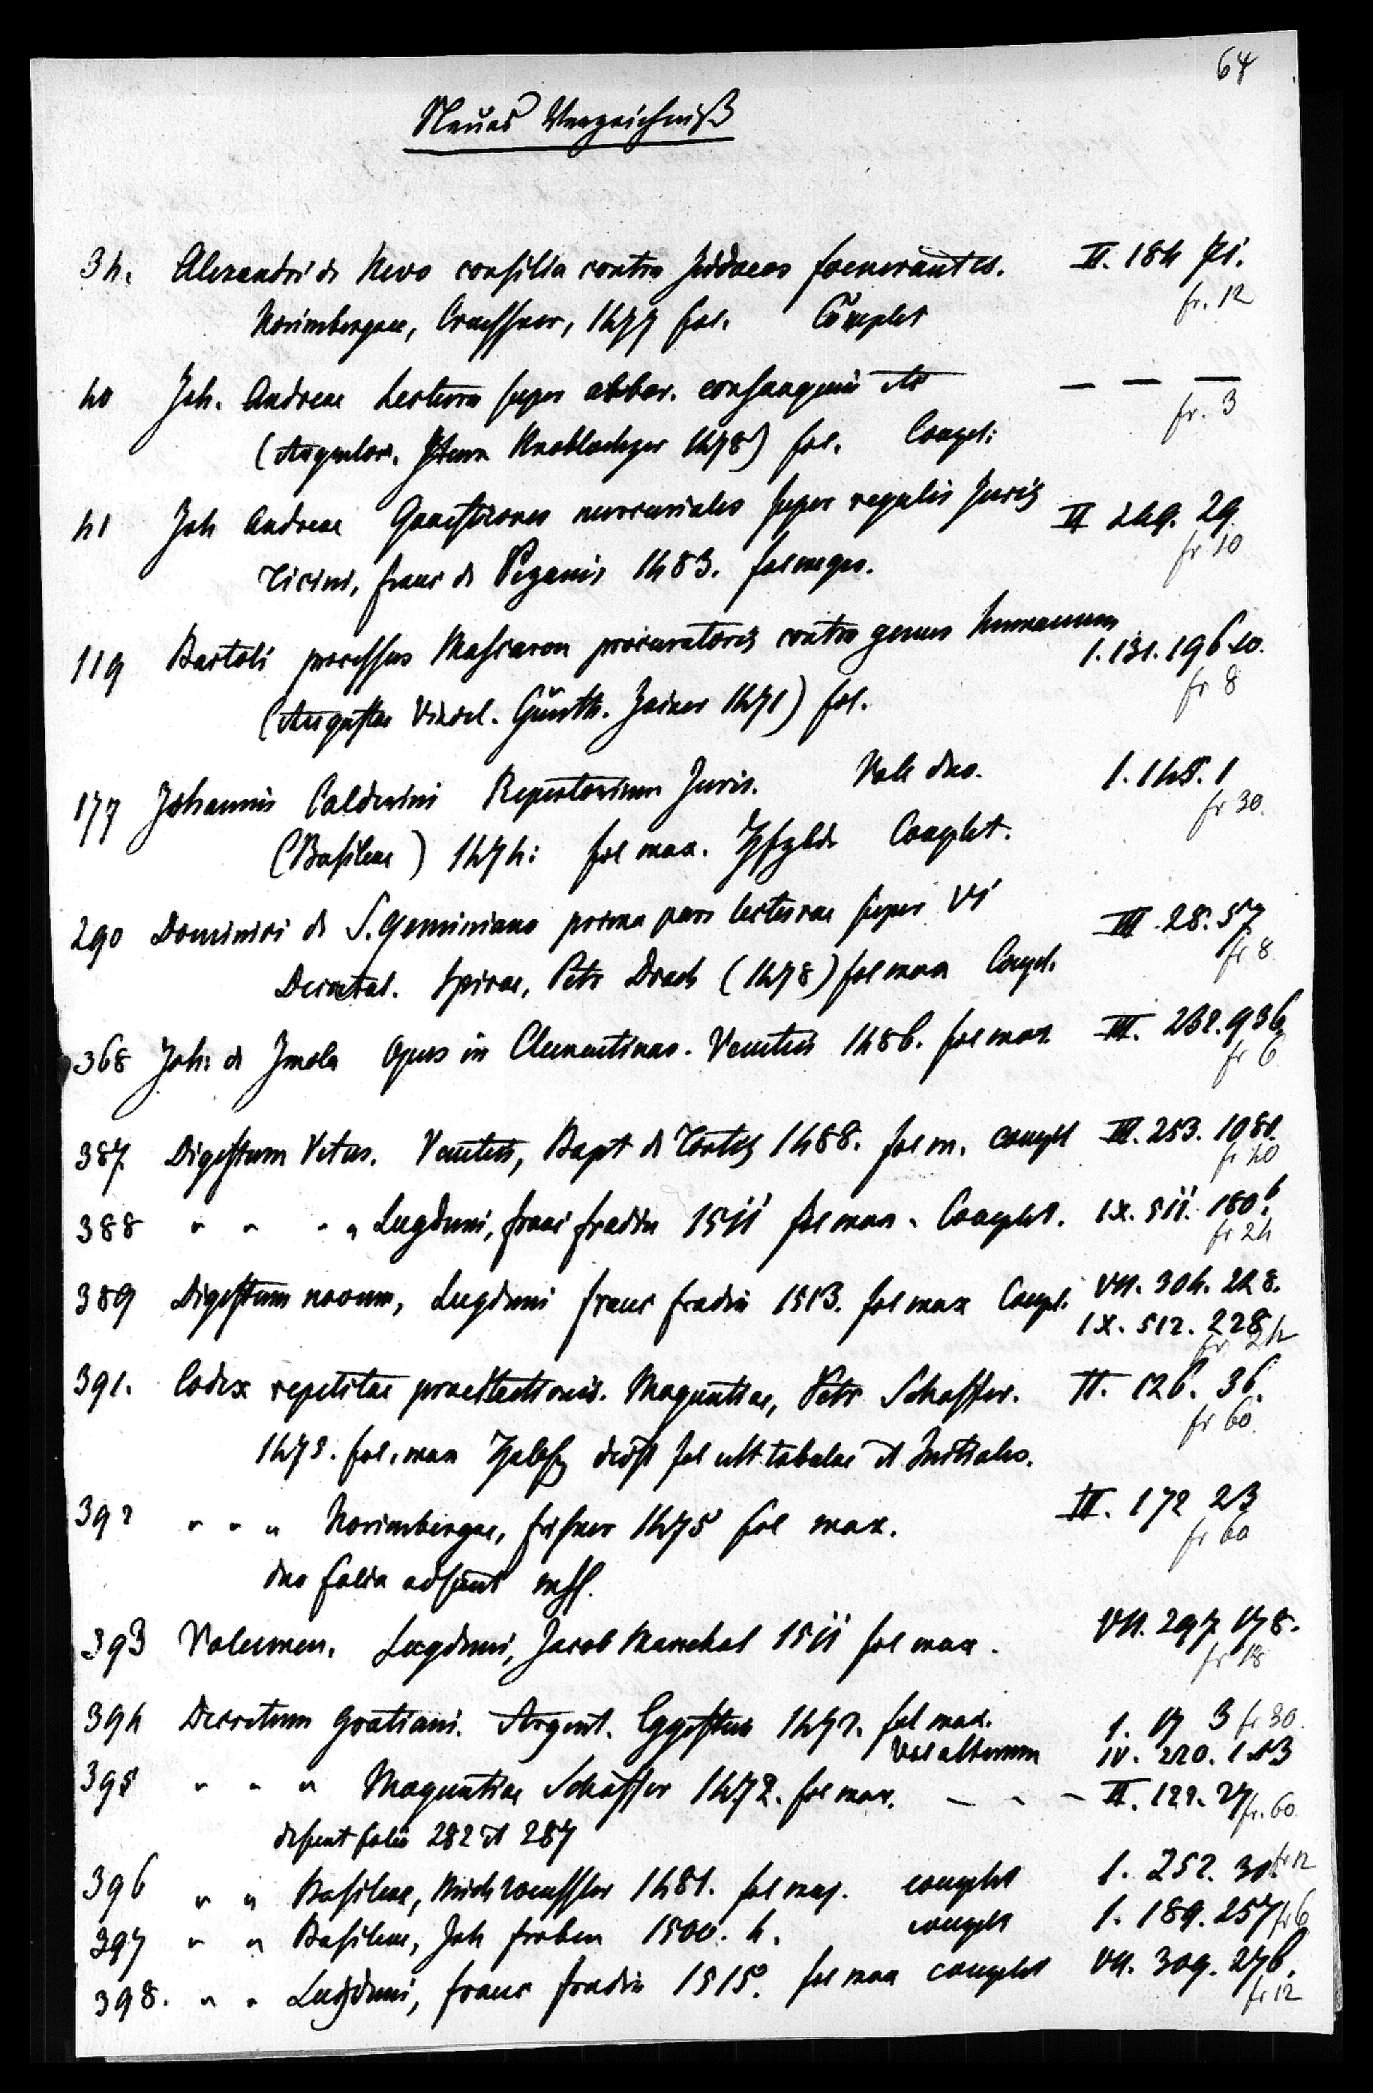 64
Neues Verzeichniß
34. Alexandri de Nevo consilia contra Judaeos foenerantes. II. 184 Pi.
Norimbergae, Creussner, 1477 fol. Complet fr. 12
40 Joh. Andreae Lectura super arbor. consanguin etc — — —
(Augustor. Knoblochzer 1478) fol. Compl: fr. 3
41 Joh Andreae Quaestiones mercuriales super regulis Juris II 249. 29.
Ticini, franc de Peganis 1483. fol fr 10
119 Bartoli processus Mascaron procuratoris contra genus humanum 1. 131. 196.10.
(Augustae Vindel. Günth. Zainer 1471) fol. fr 8
177 Johannis Calderini Repertorium Juris. Voll duo. 1. 145. 1
(Basileae) 1474: fol max. Complet. fr 30.
290 Dominici de S. Geminiano prima pars lecturae super VI III. 28. 57
Decretal. Spirae, Petr Drach (1478) fol max Compl. fr 8.
368 Joh: de Imola Opus in Clementinas. Venetiis 1486. fol max III. 232. 936
fr 6
387. Digestum Vetus. Venetiis, Bapt de Tortis 1488. fol m. complt III. 253. 1081.
fr 40
388 " " " " Lugduni, franc fradin 1511 fol max. Complet. IX. 511. 180b.
fr 24
389 Digestum novum, Lugduni franc fradin 1513. fol max Compl. VII. 304. 228.
IX. 512. 228
fr 24
391. Codex repetitae praelectionis. Maguntiae, Petr Schoffer. II. 126. 36.
147 . fol. max deest fol ult tabulae et Initiales. fr 60.
392 " " " Norimbergae, frisner 1475 fol max. III. 172 23
duo folia adsunt mss. fr 60
393 Volumen. Lugduni, Jacob Mareschal 1511 fol max. VII. 297. 178.
fr 18
394 Decretum Gratiani. Argent. Eggestein 1472. fol max. 1. 17 3 fr 30.
Vol alterum IV. 220. 153
395 " " " Maguntiae Schöffer 1472. fol max. — - — II. 122. 27 fr. 60
desunt folia 282 et 287
396 " " Basileae, Mich Wenssler 1481. fol maj. complet 1. 252. 305 fr 12
397 " " Basileae, Joh froben 1500. 4. complt 1. 189. 257 fr 6
398. " " Lugduni, franc fradin 1515. fol max complet VII. 309. 276.
fr 12